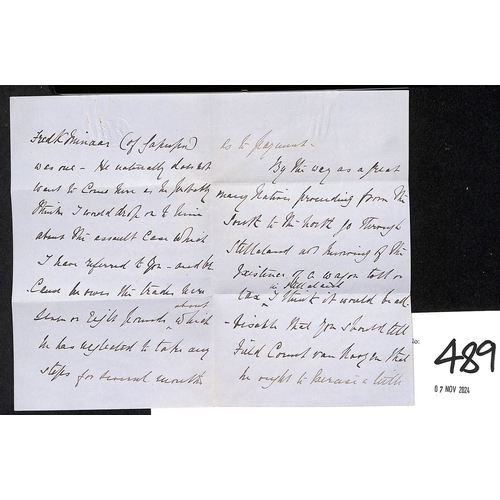 Fredk Minaar (of
was one - He naturally does not
want to come here as he probably
thinks I would drop on to him
about the assault case which
I have referred to you - and be
cause he owes the trader here
about
seven or Eight pounds, which
he has neglected to take any
steps for several months
as to payment.
By the way as a great
many Natives proceeding from the
South to the North go through
Stellaland not knowing of the
Existence of a wagon toll or
in Stellaland
tax I think it would be ad
-visable that you should tell
Field Cornet van
he ought to exercise a little
No:
489
07 NOV 2024